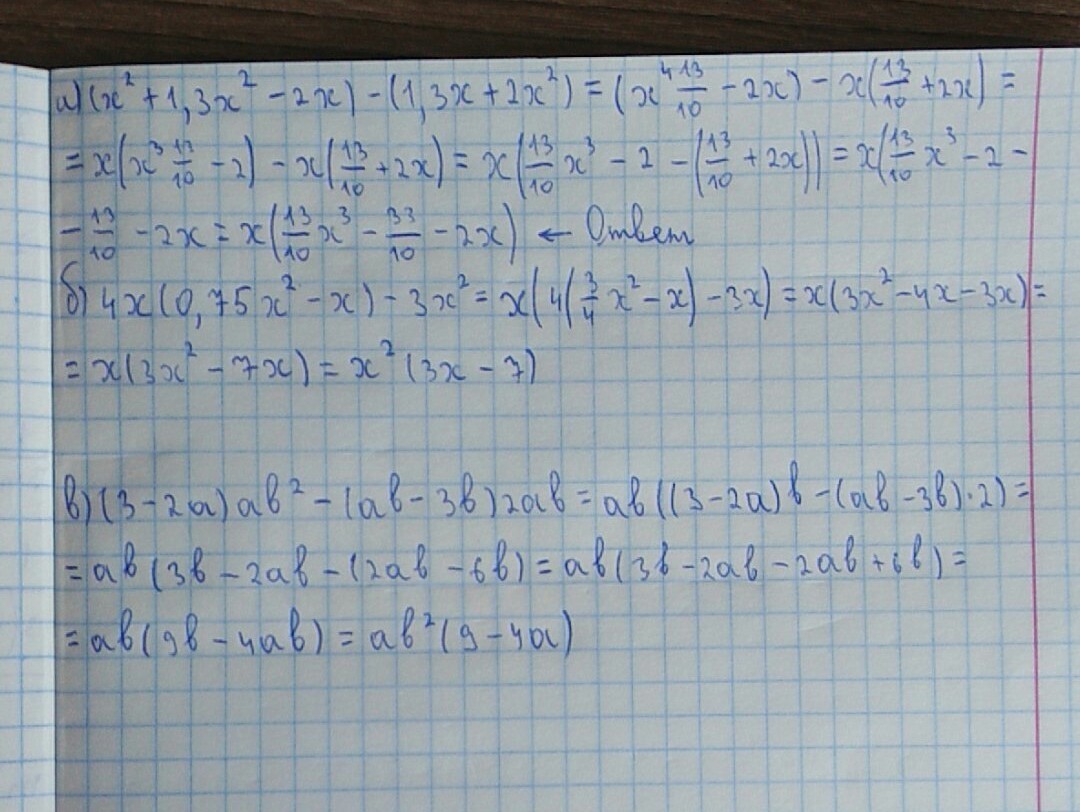 а) (x² + 1,3x² - 2x) - (1,3x + 2x²) = (x⁴ 13/10 - 2x) - x(13/10 + 2x) =
= x(x³ 13/10 - 2) - x(13/10 + 2x) = x(13/10 x³ - 2 - (13/10 + 2x)) = x(13/10 x³ - 2 -
- 13/10 - 2x = x(13/10 x³ - 33/10 - 2x) ← Ответ
б) 4x(0,75x² - x) - 3x² = x(4(3/4 x² - x) - 3x) = x(3x² - 4x - 3x) =
= x(3x² - 7x) = x²(3x - 7)
в) (3 - 2a)ab² - (ab - 3b)2ab = ab((3 - 2a)b - (ab - 3b)·2) =
= ab(3b - 2ab - (2ab - 6b) = ab(3b - 2ab - 2ab + 6b) =
= ab(9b - 4ab) = ab²(9 - 4a)